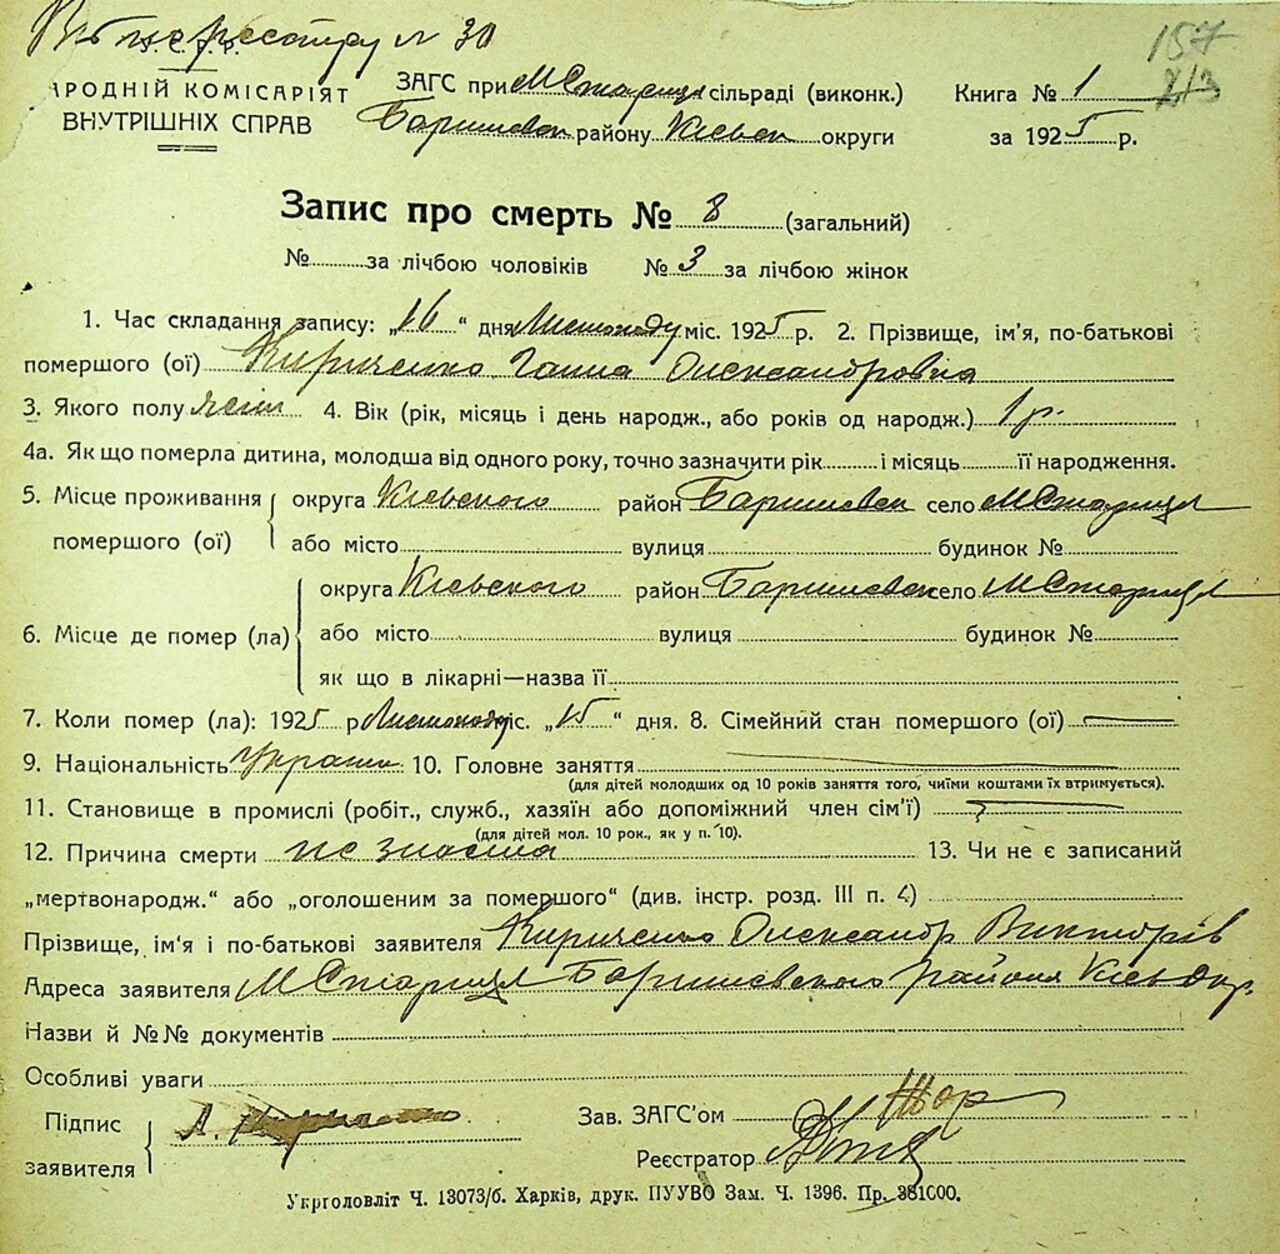 № 30
157
213
У. С. Р. Р.
НАРОДНІЙ КОМІСАРІЯТ
ВНУТРІШНІХ СПРАВ
ЗАГС при М Стариця сільраді (виконк.)
Баришевск району Київськ округи
Книга № 1
за 1925 р.
Запис про смерть № 8 (загальний)
№ за лічбою чоловіків № 3 за лічбою жінок
1. Час складання запису: „16“ дня Листопаду міс. 1925 р. 2. Прізвище, ім'я, по-батькові
помершого (ої) Кириченко Ганна Олександровна
3. Якого полу жін 4. Вік (рік, місяць і день народж., або років од народж.) 1 р.
4а. Як що померла дитина, молодша від одного року, точно зазначити рік і місяць її народження.
5. Місце проживання помершого (ої) округа Кієвского район Баришевск село М Стариця
або місто вулиця будинок №
6. Місце де помер (ла) округа Кієвского район Баришевск село М Стариця
або місто вулиця будинок №
як що в лікарні—назва її
7. Коли помер (ла): 1925 р Листопаду міс. „15“ дня. 8. Сімейний стан помершого (ої)
9. Національність Україн 10. Головне заняття
(для дітей молодших од 10 років заняття того, чиїми коштами їх втримується).
11. Становище в промислі (робіт., служб., хазяїн або допоміжний член сім'ї)
(для дітей мол. 10 рок., як у п. 10).
12. Причина смерти не знаєма 13. Чи не є записаний
„мертвонародж.“ або „оголошеним за помершого“ (див. інстр. розд. III п. 4)
Прізвище, ім'я і по-батькові заявителя Кириченко Олександр Викторів
Адреса заявителя М Стариця Баришевского района Київ Окр.
Назви й №№ документів
Особливі уваги
Підпис заявителя А. Кириченко
Зав. ЗАГС'ом
Реєстратор
Укрголовліт Ч. 13073/б. Харків, друк. ПУУВО Зам. Ч. 1396. Пр. 381000.